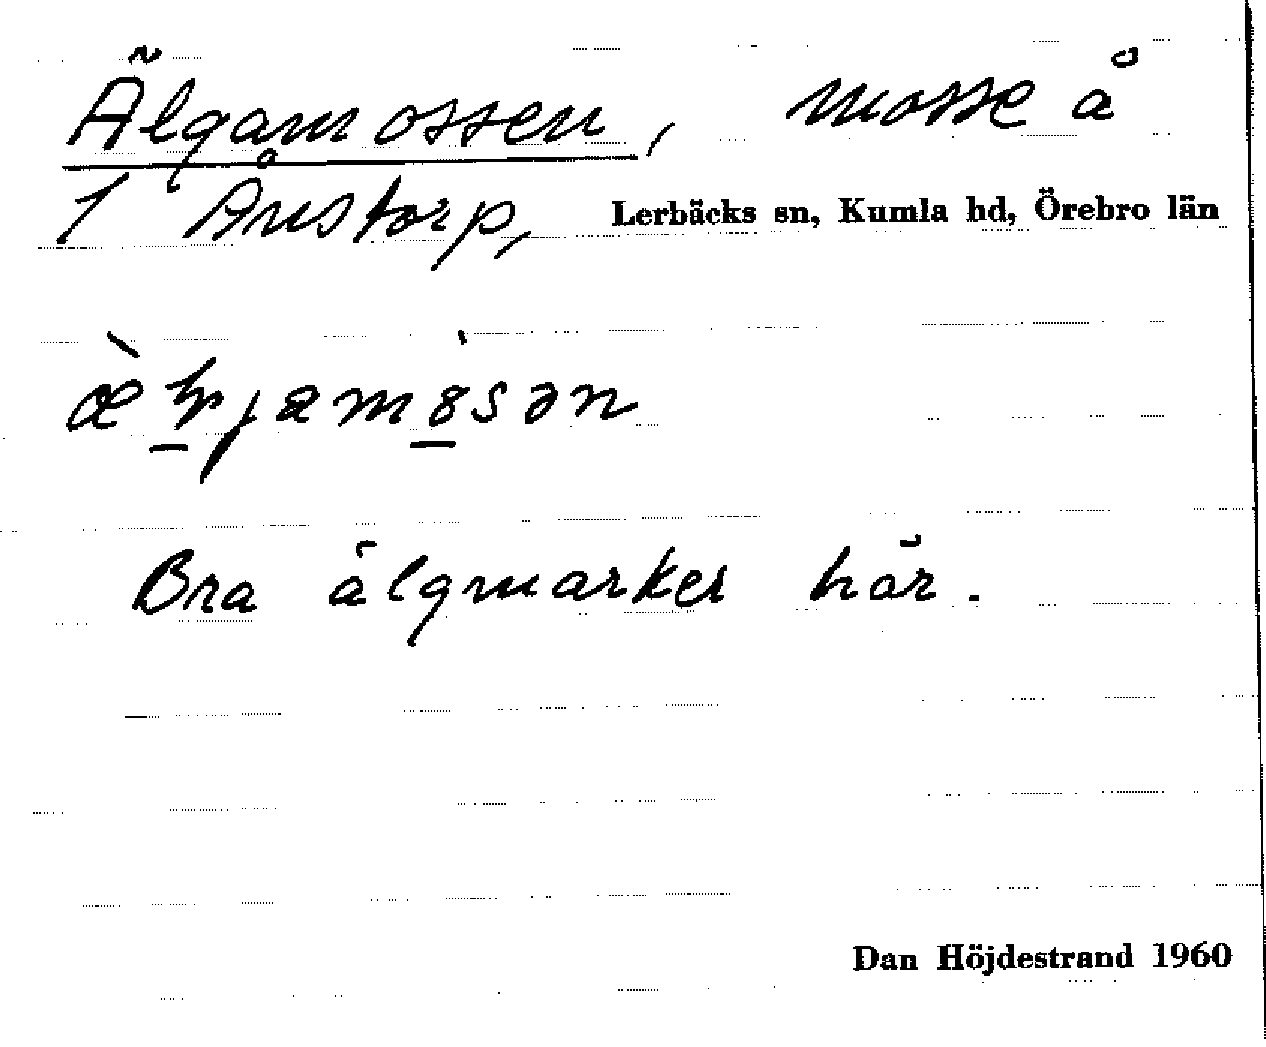 Älgamossen, mosse å
1 Ånstorp, Lerbäcks sn, Kumla hd, Örebro län
Bra älgmarker här.
Dan Höjdestrand 1960